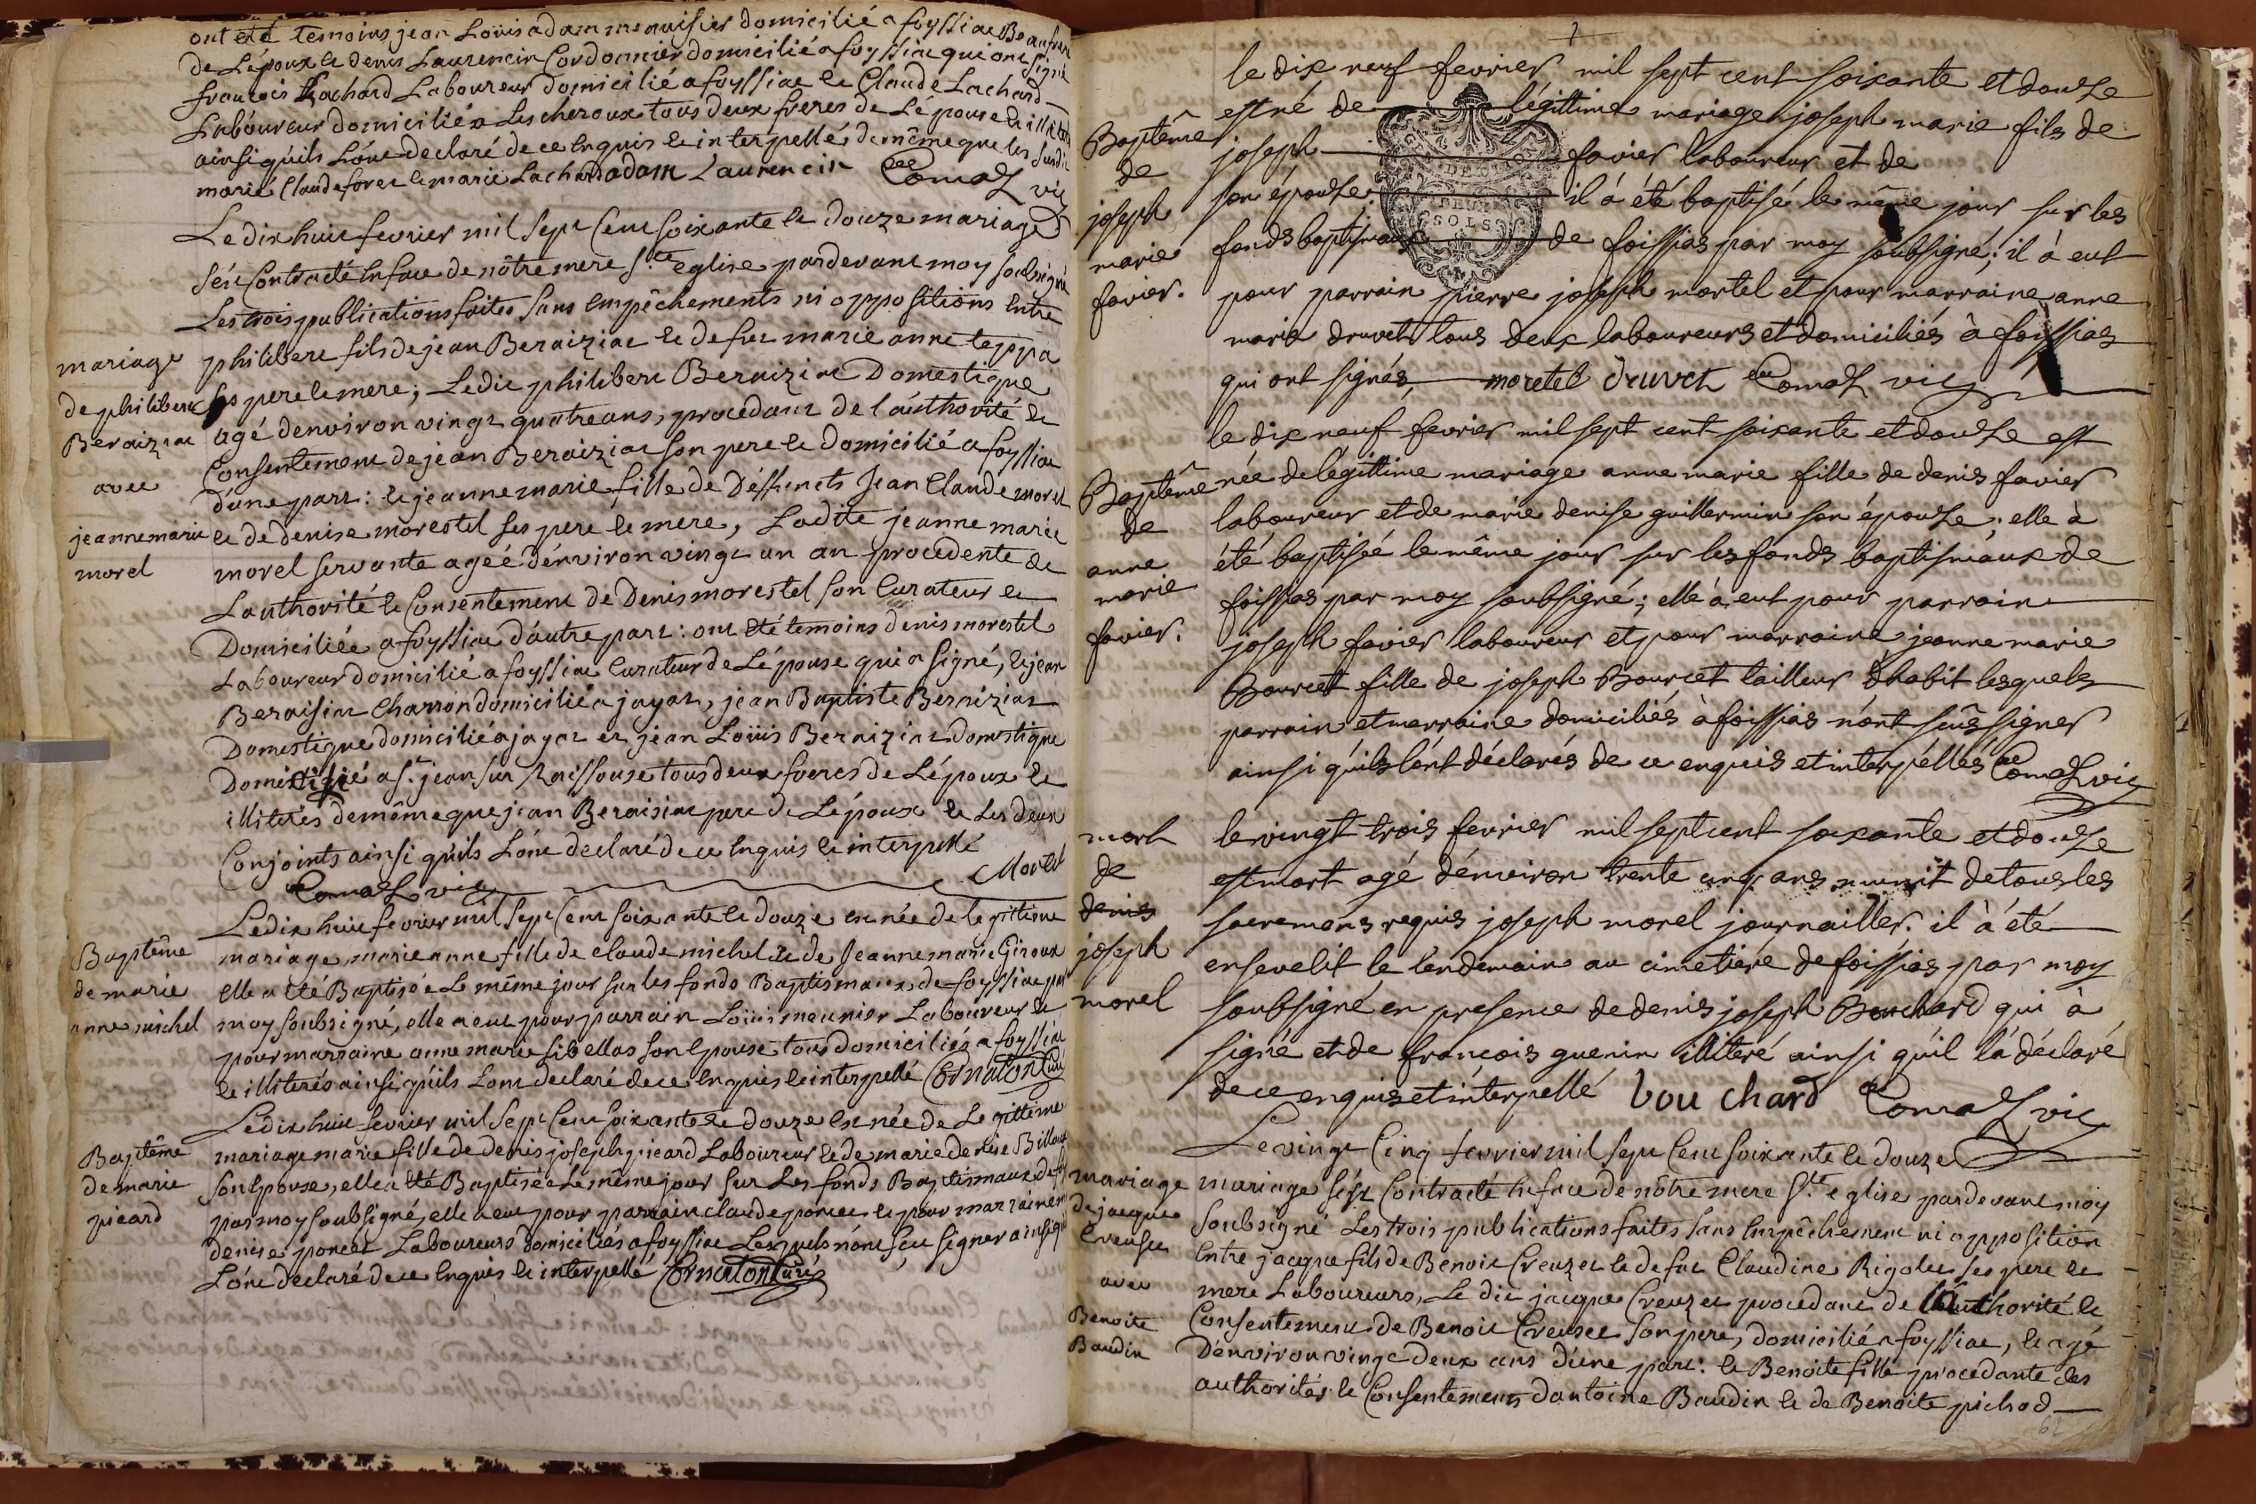 ont eté temoins jean Loüis adam menuisier domicilié a foyssiac Beaufrere
de Lépoux et denis Laurencin Cordonnier domicilié a foyssiac qui ont signé
francois Lachard Laboureur domicilié a foyssiac et Claude Lachard
Laboureur domicilié a Lescheroux tous deux freres de Lépouse et illiterés
ainsi quils Lónt declaré de ce Enquis et interpellé de même que les susdits
mariés Claude foret et marie Lachard adam Laurencin Comaz vic
Le dix huit fevrier mil sept Cent soixante et douze mariage
s'ést Contracté En face de nôtre mere ste eglise pardevant moy soubsigné
Les trois publications faites sans Empêchements ni oppositions Entre
philibert fils de jean Beraiziat et defue marie anne teppa
ses pere et mere; Ledit philibert Beraiziat Domestique
agé denviron vingt quatre ans, procedant de l'aúthorité et
Consentement de jean Beraiziat son pere et domicilié a foyssiac
d'une part: et jeanne marie fille de Déffuncts Jean Claude morel
et de denise morestel ses pere et mere, Ladite jeanne marie
morel servante ageé d'énviron vingt un an procedente de
Lauthorité et Consentement de Denis morestel son Curateur et
Domiciliée a foyssiac d'áutre part: ont eté temoins denis morestel
Laboureur domicilié a foyssiac Curateur de Lépouse qui a signé, et jean
Beraisiat Charron domicilié a jayat, jean Baptiste Beraiziat
Domestique domicilié a jayat et jean Loüis Beraiziat domestique
Domicilié a st jean sur Raissouse tous deux freres de Lépoux et
illiterés de même que jean Beraisiat pere de Lépoux et Les deux
Conjoints ainsi quils Lónt declaré de ce Enquis et interpellé
Comaz vic Morel
mariage
de philibert
Beraiziat
avec
jeanne marie
morel
Le dix huit fevrier mil sept Cent soixante et douze est née de legitime
mariage marie anne fille de claude michel et de Jeanne marie Giroux
elle a eté Baptisée Le même jour sur les fonds Baptismaux de foyssiac par
moy soubsigné, elle a eut pour parrain Loüis meunier Laboureur et
pour marraine anne marie sibellas son Epouse tous domiciliés a foyssiac
et illiterés ainsi quils Lont declaré de ce Enquis et interpellé Cornaton Curé
Baptême
de marie
anne michel
Le dix huit fevrier mil sept Cent soixante et douze est née de Legittime
mariage marie fille de denis joseph picard Laboureur et de marie denise Billoux
son Epouse, elle a eté Baptisée Le même jour sur Les fonds Baptismaux de
par moy soubsigné, elle a eut pour parrain claude poncet et pour marraine
denise poncet Laboureurs domiciliés a foyssiac Lesquels nónt sçu signer ainsi quils
Lónt declaré de ce Enquis et interpellé Cornaton Curé
Baptême
de marie
picard
le dix neuf fevrier mil sept cent soixante et douze
est né de légittime mariage joseph marie fils de
joseph favier laboureur et de
son épouse. il á été baptisé le même jour sur les
fonds baptismaux de foissias par moy soubsigné; il á eut
pour parrain pierre joseph mortel et pour marraine anne
marie druvet tous deux laboureurs et domiciliés à foissias
qui ont signés, moretel druvet Comaz vic
DEUX
SOLS
Baptême
de
joseph
marie
favier.
le dix neuf fevrier mil sept cent soixante et douze est
née de légittime mariage anne marie fille de denis favier
laboureur et de marie denise guillermin son épouse. elle à
été baptiséé le même jour sur les fonds baptismaux de
foissias par moy soubsigné; elle á eut pour parrain
joseph favier laboureur et pour marraine jeanne marie
Bourcet fille de joseph Bourcet tailleur d'habit lesquels
parrain et marraine domiciliés à foissias n'ont sçus signer
ainsi qu'ils l'ont déclarés de ce enquis et interpéllés Comaz vic
Baptême
de
anne
marie
favier.
le vingt trois fevrier mil sept cent soixante et douze
est mort agé d'énviron trente cinq ans munit de tous les
sacremens requis joseph morel journailler. il á été
ensevelit le lendemain au cimetiere de foissias par moy
soubsigné en presence de denis joseph Bouchard qui à
signé et de francois guenin illiteré ainsi qu'il lá déclaré
de ce enquis et interpellé bouchard Comaz vic
mort
de
denis
joseph
morel
Le vingt Cinq fevrier mil sept Cent soixante et douze
mariage s'ést Contracté En face de nôtre mere Ste eglise pardevant moy
soubsigné Les trois publications faites sans Empêchement ni opposition
Entre jacque fils de Benoit Creuzet et defue Claudine Rigolet ses pere et
mere Laboureurs, Le dit jacque Creuzet procedant de Lauthorité et
Consentement de Benoit Creuset son pere, domicilié a foyssiac, et agé
D'environ vingt deux ans d'úne part: et Benoite fille procedante des
authorités et Consentements dantoine Baudin et de Benoite pichod
mariage
de jacque
Creuset
avec
Benoite
Baudin